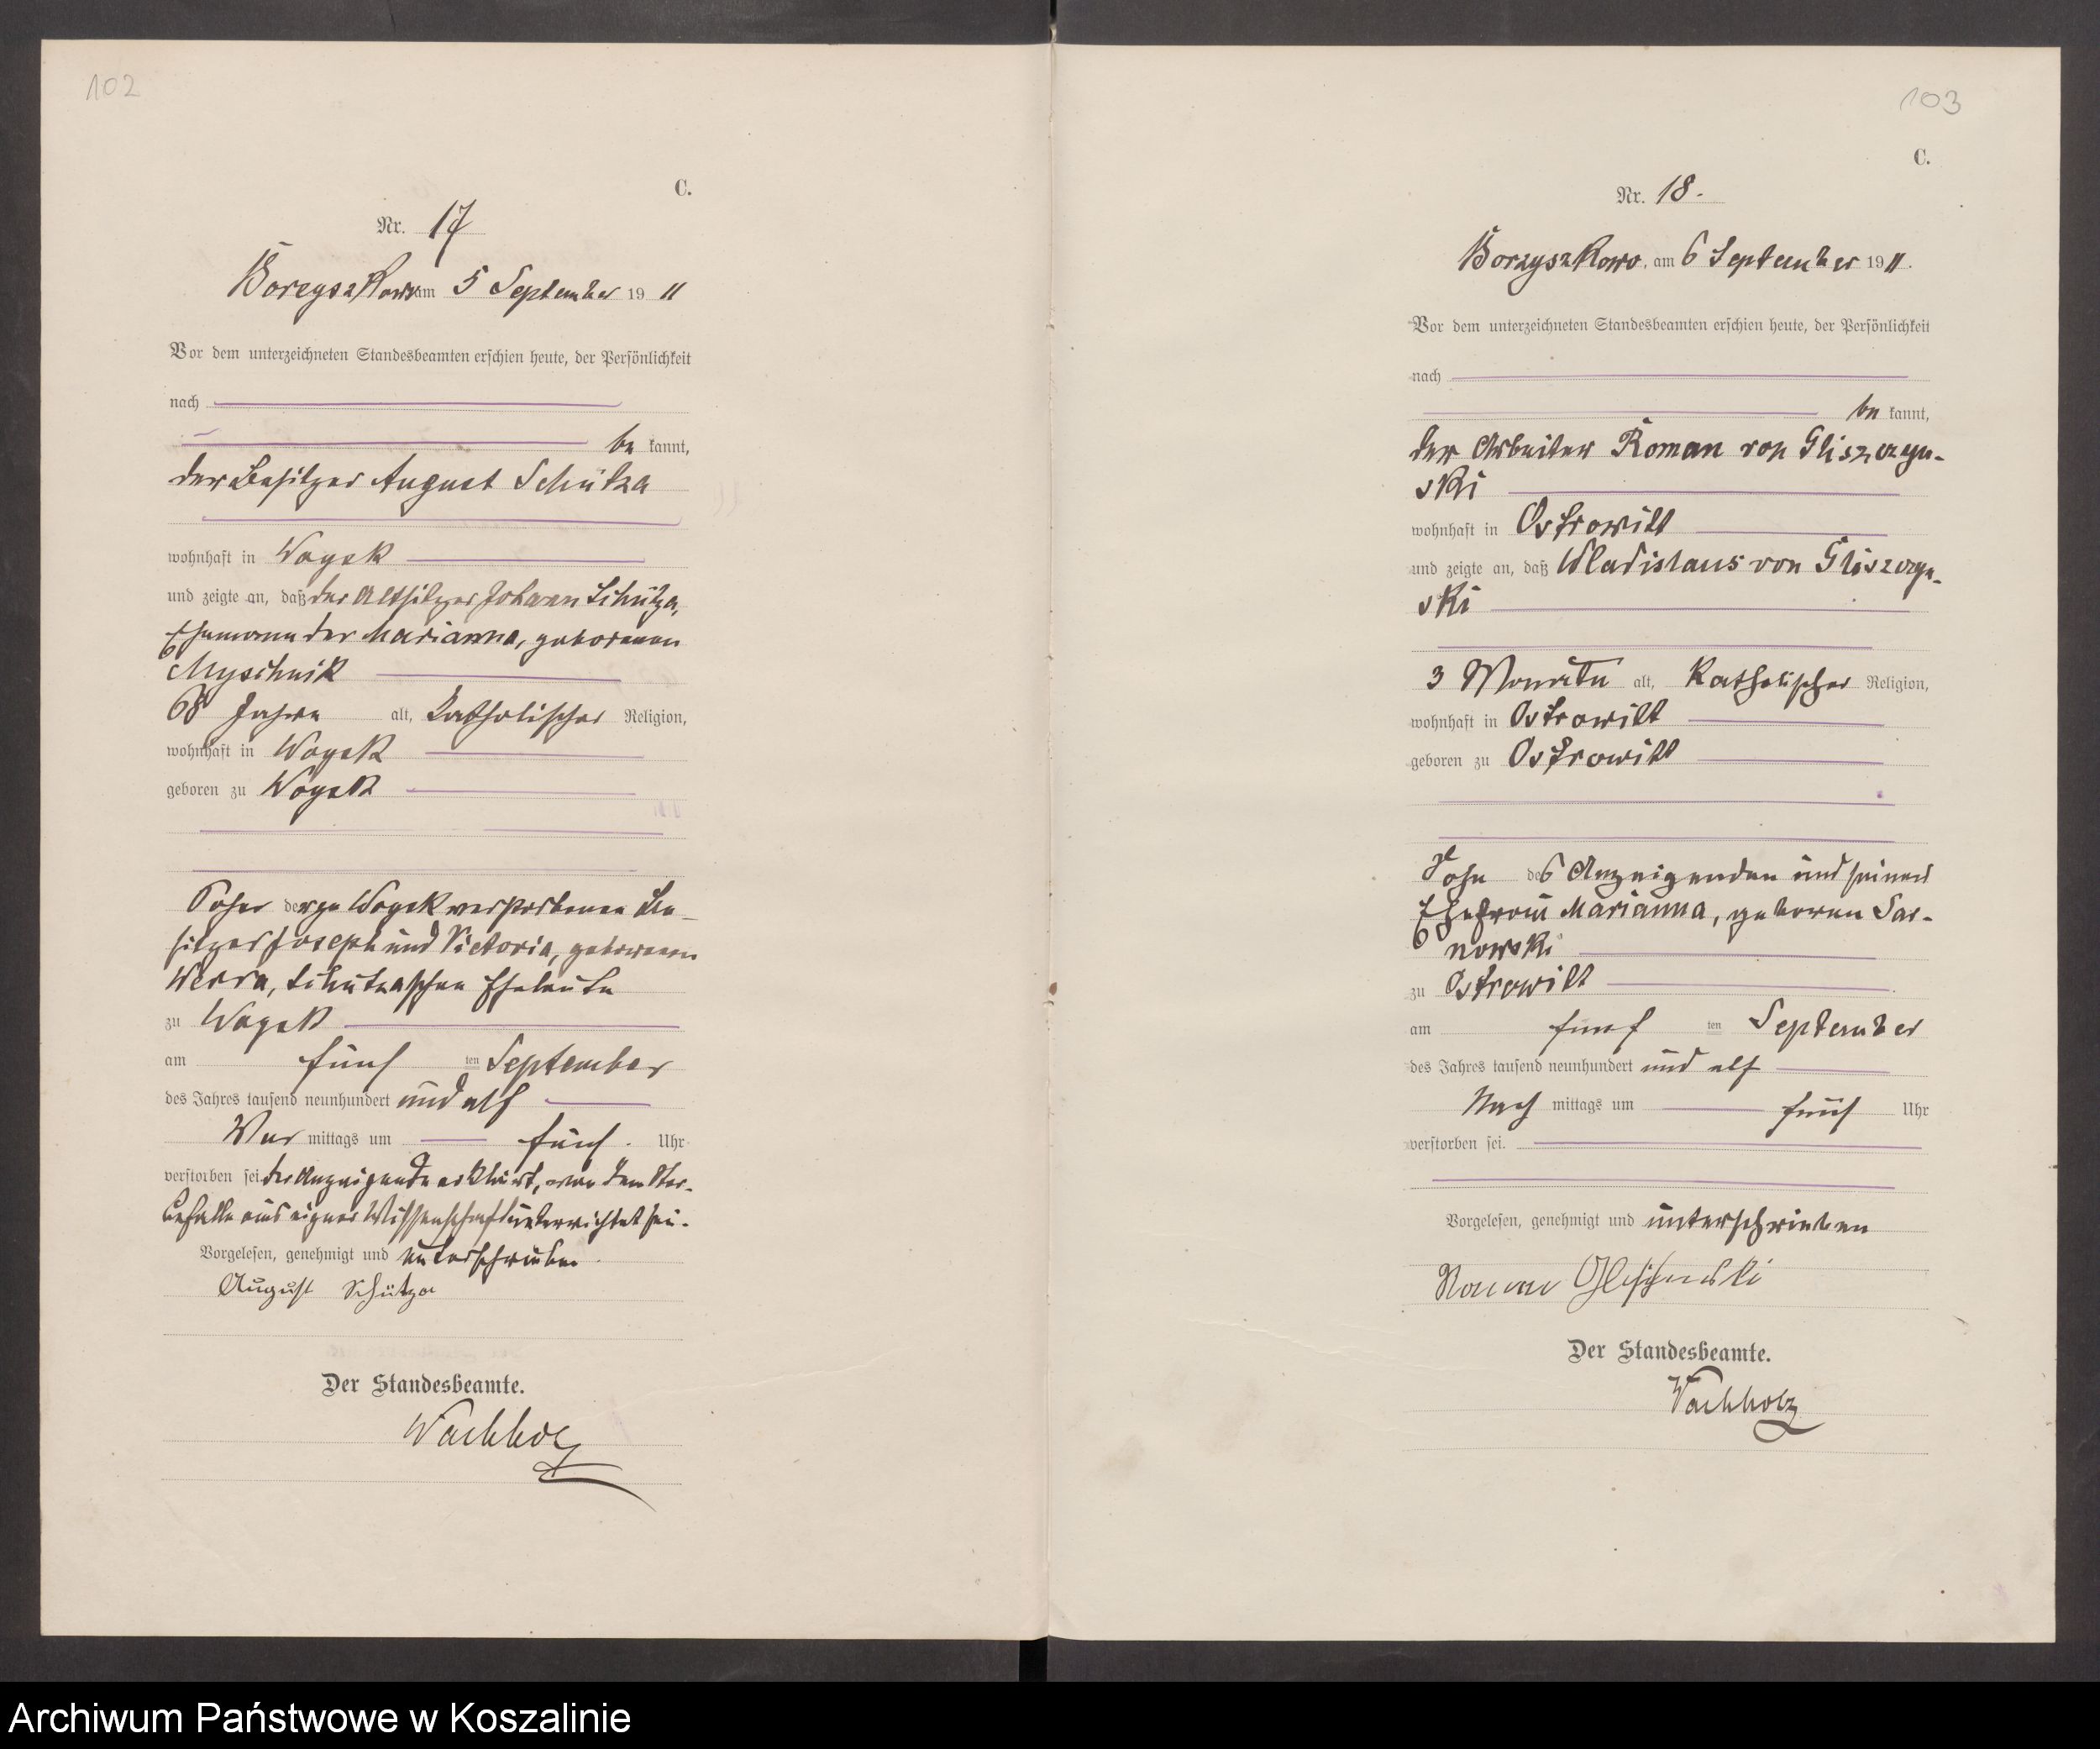 102
C.
Nr. 17
Borzyszkowo am 5 September 19 11
Vor dem unterzeichneten Standesbeamten erschien heute, der Persönlichkeit
nach
be kannt,
der Besitzer August Schütza
wohnhaft in Woysk
und zeigte an, daß der Altsitzer Johann Schütza,
Ehemann der Marianna, geborenen
Myschnik
68 Jahre alt, katholischer Religion,
wohnhaft in Woysk
geboren zu Woysk
Sohn der zu Woysk verstorbenen Be-
sitzer Joseph und Victoria, geborenen
Werra, Schützaschen Eheleute
zu Woysk
am fünf ten September
des Jahres tausend neunhundert und elf
Vor mittags um fünf Uhr
verstorben sei der Anzeigende erklärt, von dem Ster-
befalle aus eigner Wissenschaft unterrichtet sei.
Vorgelesen, genehmigt und unterschrieben
August Schütza
Der Standesbeamte.
Wachholz
103
C.
Nr. 18.
Borzyszkowo, am 6 September 19 11.
Vor dem unterzeichneten Standesbeamten erschien heute, der Persönlichkeit
nach
be kannt,
der Arbeiter Roman von Gliszczyn-
ski
wohnhaft in Ostrowitt
und zeigte an, daß Wladislaus von Gliszczyn-
ski
3 Monate alt, katholischer Religion,
wohnhaft in Ostrowitt
geboren zu Ostrowitt
Sohn des Anzeigenden und seiner
Ehefrau Marianna, geboren Sar-
nowski
zu Ostrowitt
am fünf ten September
des Jahres tausend neunhundert und elf
Nach mittags um fünf Uhr
verstorben sei.
Vorgelesen, genehmigt und unterschrieben
Roman
Der Standesbeamte.
Wachholz
Archiwum Państwowe w Koszalinie